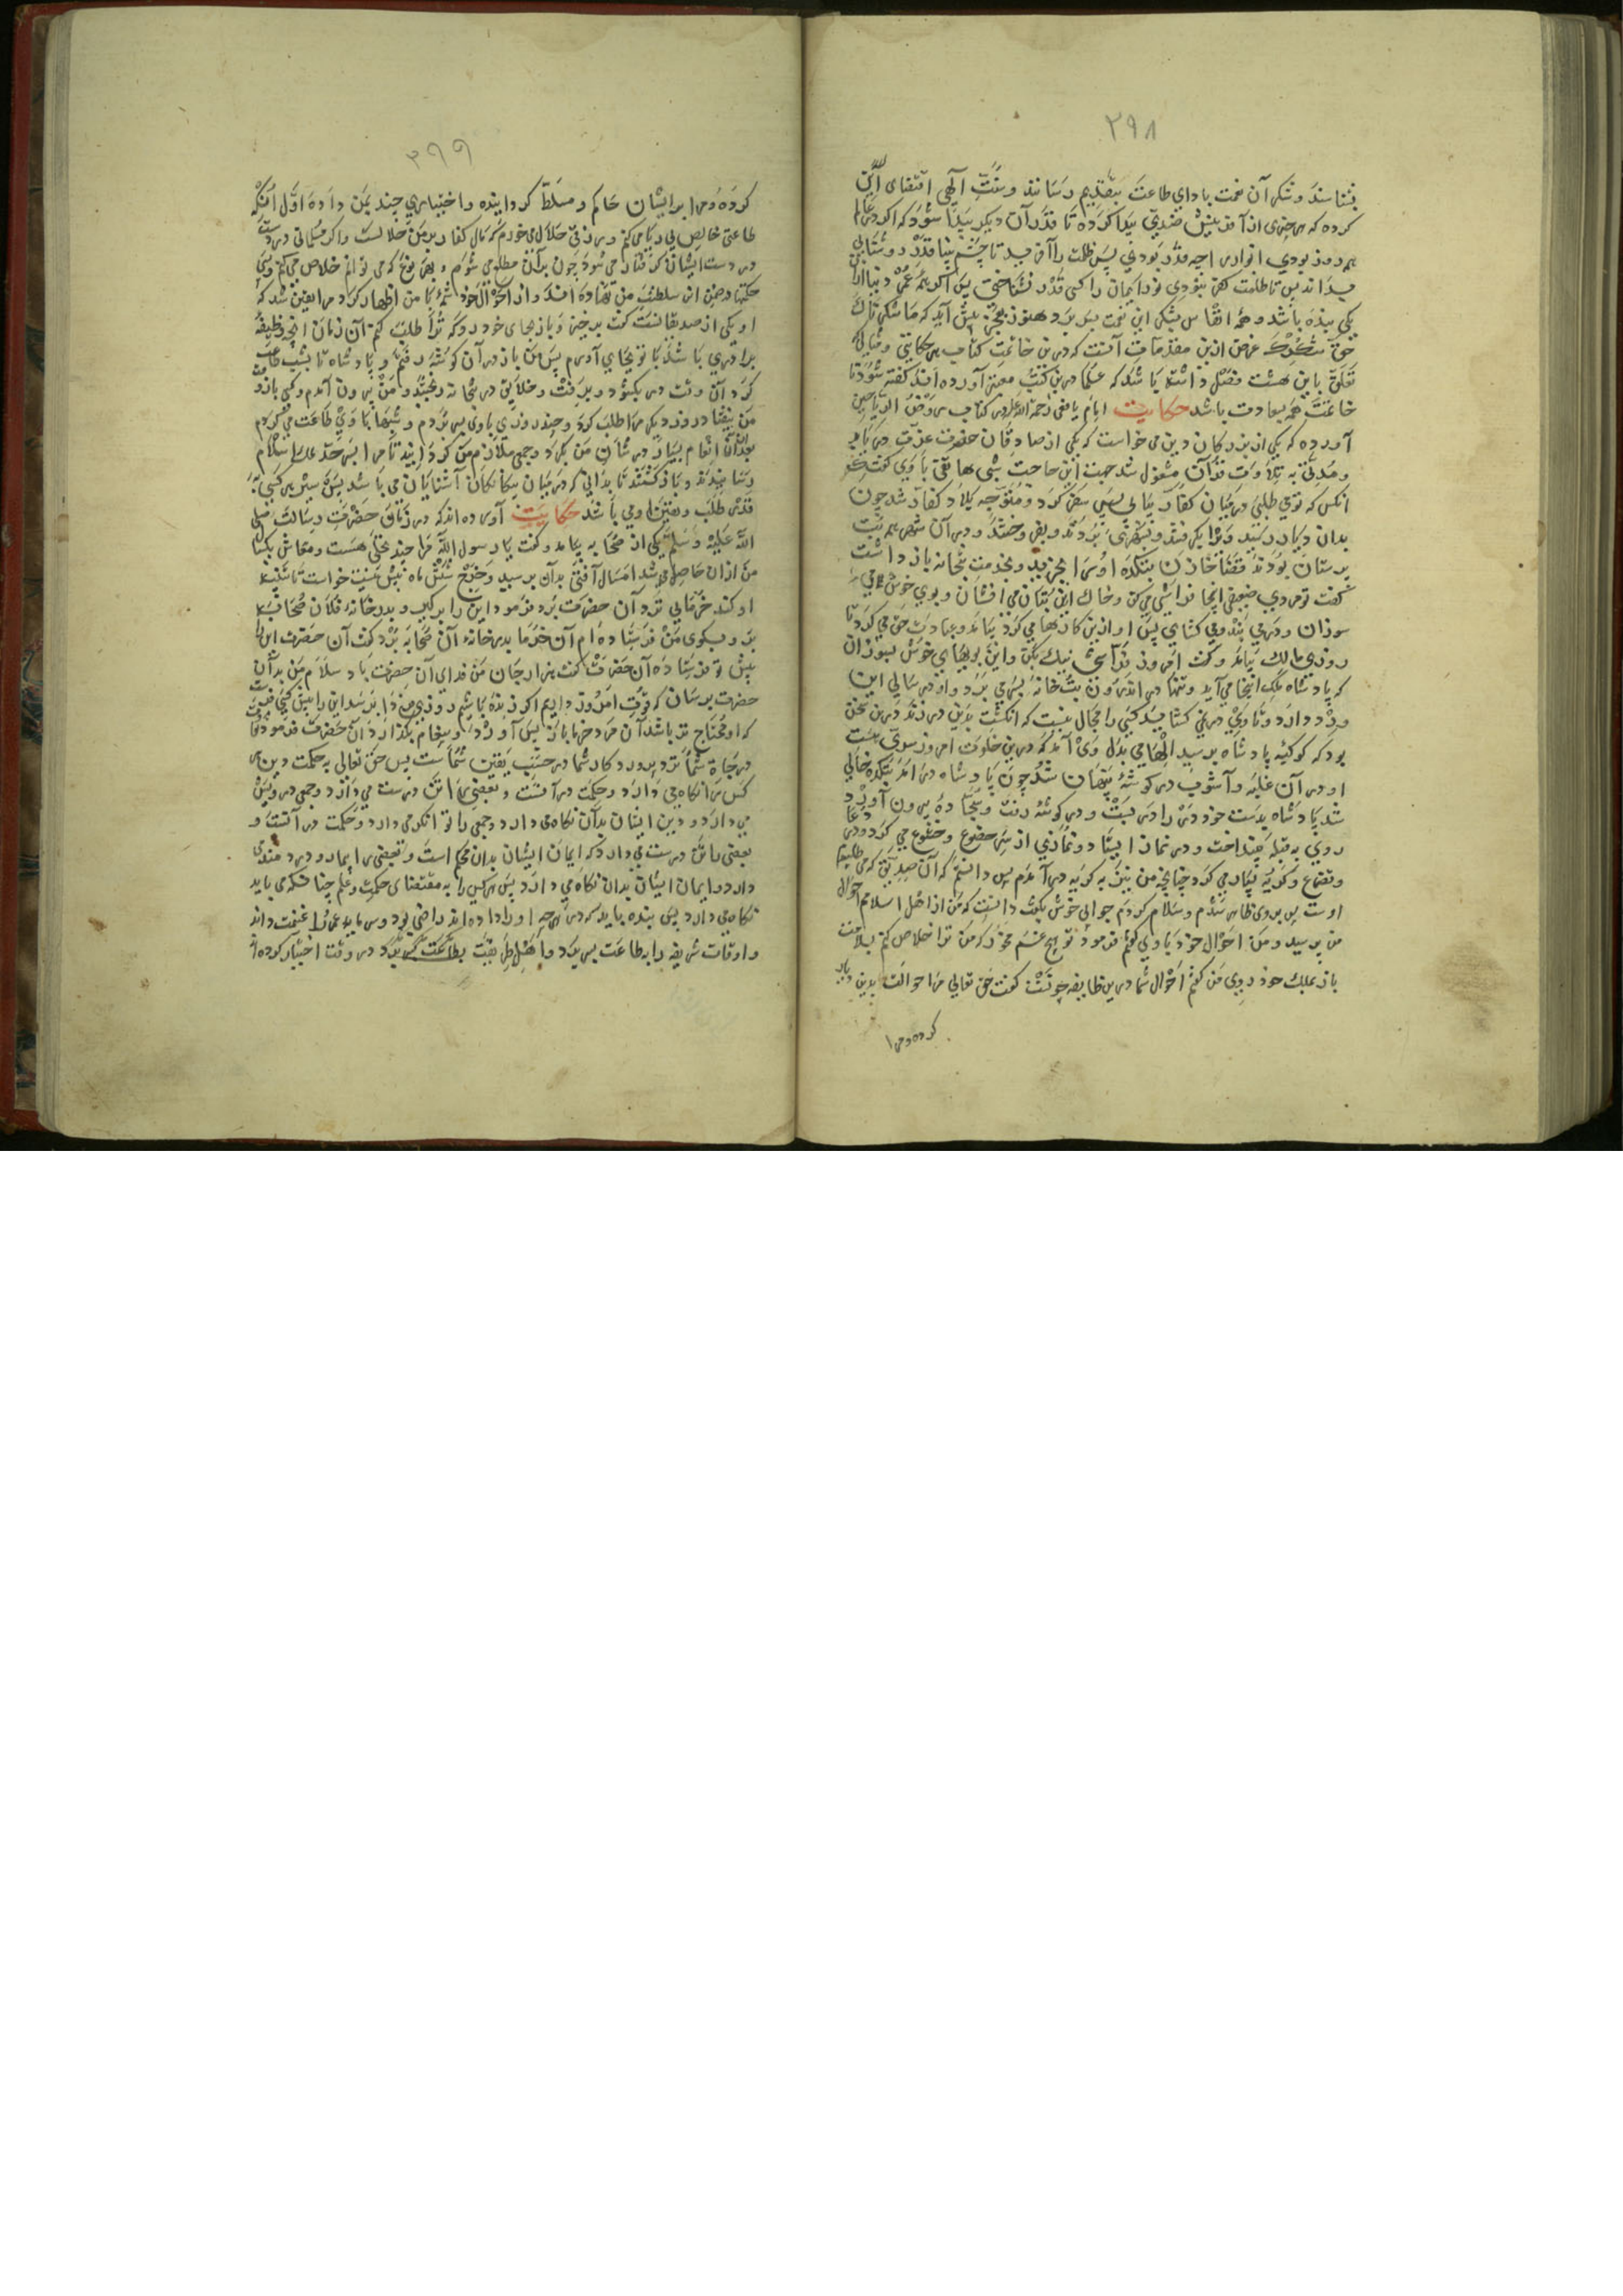 ٢٩٨
بشناسند و شکر آن نعمت بادای طاعت بتقدیم رسانند و سنت آلهی اقتضای این
کرده که هر چیزی از آفرینش ضدی پیدا کرده تا قدر آن دیکر پیدا شود که اکر در عالم
همه روز بودی انوار را چه قدر بودی پس ظلمت را آفرید تا چشم بینا قدر روشنایی
بداند پس تا ظلمت کفر نبودی نور ایمان را کسی قدر نشناختی پس اکر همه عمر دنیا از آن
یکی بنده باشد و همه انفاس بشکر این نعمت بسر برد هنوز بعجز پیش آید که ما شکرناک
حق شکرک غرض ازین مقدمات آنست که درین خاتمت کتاب هر حکایتی و مثالی که
تعلق باین هشت فصل داشته باشد که علما درین کتب معتبر آورده اند کفته شود تا
خاتمت همه بسعادت باشد حکایت امام یافعی رحمة الله علیه در کتاب روض الریاحین
آورده که یکی از بزرکان دین می خواست که یکی از صادقان حضرت عزت دریابد
و مدتی به تلاوت قرآن مشغول شد جهت این حاجت شبی هاتفی با وی کفت
آنکس که تو می طلبی در میان کفار یابی پس سفر کرد و متوجه بلاد کفار شد چون
بدان دیار رسید و را بکرفتند و بشهری بردند و بفروختند و در آن شهر همه بت
پرستان بودند قضا خازن بتکده او را بخرید و بخدمت بتخانه باز داشت
کفت تو مردی ضعیفی اینجا فراشی می کن و خاک این بتان می افشان و بوی خوش می
سوزان و در می بند و می کشای پس او ازین کارها می کرد و عبادت حق می کرد تا
روزی مالک بیامد و کفت امروز فراشی نیک بکن و این بویهای خوش بسوزان
که پادشاه ملک اینجا می آید و تنها در اندرون بتخانه بسر می برد و او در سالی این
ورد دارد و با وی درین کشا پسند کسی را مجال نیست که انکشت بدین در زند درین سخن
بود که کوکبه پادشاه برسید الهامی بدل وی آمد که درین خلوت امروز سری هست
او در آن غلبه و آشوب در کوشه پنهان شد چون پادشاه در آمد بتکده خالی
شد پادشاه بدست خود در را در بست و در کوشه رفت و سجاده بیرون آورد و
روی به قبله بینداخت و در نماز ایستاد و نمازی از سر خضوع و خشوع می کرد و دعا
و تضرع و کریه بسیار می کرد چنانچه من نیز به کریه در آمدم پس دانستم که آن صدیق که می طلبیدم
اوست پس بروی ظاهر شدم و سلام کردم جوابی خوش بکفت دانست که من از اهل اسلامم احوال
من پرسید و من احوال خود با وی کفتم فرمود تو هیچ غم مخور که من ترا خلاص کنم بسلامت
باز بملک خود روی من کفتم احوال شما درین طایفه چونست کفت حق تعالی مرا حوالت بدین دیار
کرده و مرا
٢٩٩
کرده و مرا بر ایشان حاکم و مسلط کردانیده و اختیاری چند بمن داده اول آنکه
طاعتی خالص بی ریا می کنم و رزقی حلال می خورم که مال کفار بر من حلالست و اکر مسلمانی در دست
در دست ایشان کرفتار می شود چون بر آن مطلع می شوم بهر نوع که می توانم خلاص می کنم و بسی
حکمتها در ضمن این سلطنت من نهاده اند و از احوال خود شمه با من اظهار کرد مرا یقین شد که
او یکی از صدیقانست کفت برخیز و باز بجای خود رو که ترا طلب کنم آن زمان آنچه وظیفه
برادری باشد با تو بجای آورم پس من باز در آن کوشه رفتم و پادشاه تا بشب طاعت
کرد آن وقت در بکشود و برفت و خلایق در بتخانه رفتند و من بیرون آمدم و کسی باز و
من نیفتاد روز دیکر مرا طلب کرد و چند روزی با وی بسر بردم و شبها با وی طاعت می کردم
بعد از آن انعام بسیار در شان من بکرد و جمعی ملازم من کردانید تا مرا بسر حد ملک اسلام
رسانیدند و باز کشتند تا بدانی که در میان بیکانکان آشنایان می باشد پس سیر هر کسی به
قدر طلب و یقین او می باشد حکایت آورده اند که در زمان حضرت رسالت صلی
الله علیه و سلم یکی از صحابه بیامد و کفت یا رسول الله مرا چند نخلی هست و معاش یکساله
من از آن حاصل می شد امسال آفتی بدان برسید و خرج شش ماه بیش نیست خواست تا تدبیر
او کند خرمایی نزد آن حضرت بود فرمود این را برکیر و بدر خانه فلان صحابی
بر و بکوی من فرستاده ام آن خرما بدر خانه آن صحابه برد کفت آن حضرت این را
پیش تو فرستاده آن حضرت کفت هزار جان من فدای آن حضرت باد سلام من بدان
حضرت برسان که قوت امروز داریم اکر زنده باشیم روزی فردا برسد این را پیش کسی فرست
که او محتاج تر باشد آن مرد خرما باز پس آورد و پیغام بکذارد آن حضرت فرمود
در حیاة شما تردد بود و کار شما در حسب یقین شماست پس حق تعالی به حکمت دین هر
کس را نکاه می دارد و حکمت در آنست و بعضی را تن درست می دارد و جمعی درویش
می دارد و دین ایشان بدان نکاه می دارد و جمعی را توانکر می دارد و حکمت در آنست و
بعضی را تن درست می دارد که ایمان ایشان بدان محکم است و بعضی را بیمار و دردمندی
دارد و ایمان ایشان بدان نکاه می دارد پس هر کس را به مقتضای حکمت و علم چنانکه می باید
نکاه می دارد پس بنده باید که در هر چه او را داده اند راضی بود و سرمایه عمر را غنیمت داند
و اوقات شریفه را به طاعت بسر برد و اهل طریقت بطاعت بسر برد در وقت اختیار کرده اند